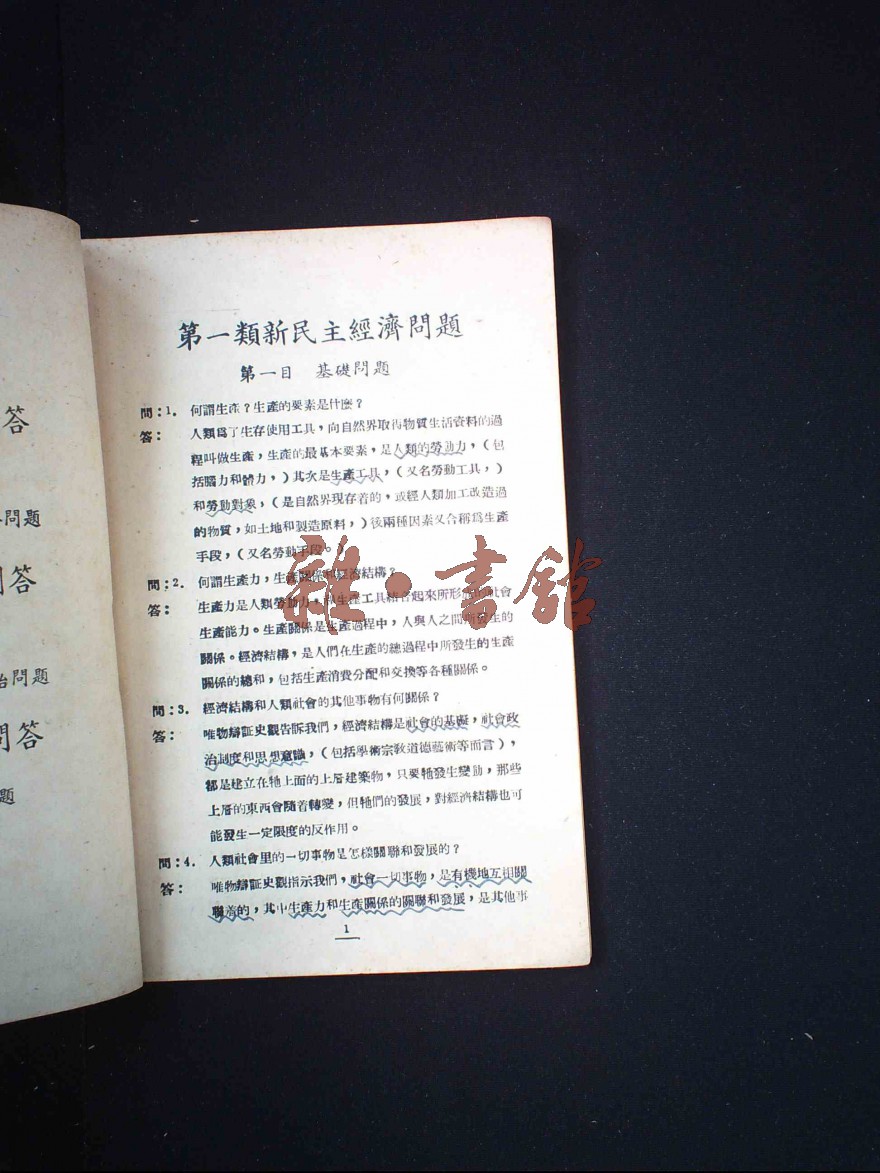 答
問題
問答
治問題
問答
題
第一類新民主經濟問題
第一目 基礎問題
問：1. 何謂生產？生產的要素是什麼？
答： 人類爲了生存使用工具，向自然界取得物質生活資料的過
程叫做生產，生產的最基本要素，是人類的勞動力，（包
括腦力和體力，）其次是生產工具，（又名勞動工具，）
和勞動對象，（是自然界現存着的，或經人類加工改造過
的物質，如土地和製造原料，）後兩種因素又合稱爲生產
手段，（又名勞動手段。）
問：2. 何謂生產力，生產關係和經濟結構？
答： 生產力是人類勞動力，和生產工具結合起來所形成的社會
生產能力。生產關係是生產過程中，人與人之間所發生的
關係。經濟結構，是人們在生產的總過程中所發生的生產
關係的總和，包括生產消費分配和交換等各種關係。
問：3. 經濟結構和人類社會的其他事物有何關係？
答： 唯物辯証史觀告訴我們，經濟結構是社會的基礎，社會政
治制度和思想意識，（包括學術宗敎道德藝術等而言），
都是建立在牠上面的上層建築物，只要牠發生變動，那些
上層的東西會隨着轉變，但牠們的發展，對經濟結構也可
能發生一定限度的反作用。
問：4. 人類社會里的一切事物是怎樣關聯和發展的？
答： 唯物辯証史觀指示我們，社會一切事物，是有機地互相關
聯着的，其中生產力和生產關係的關聯和發展，是其他事
1
雜·書館